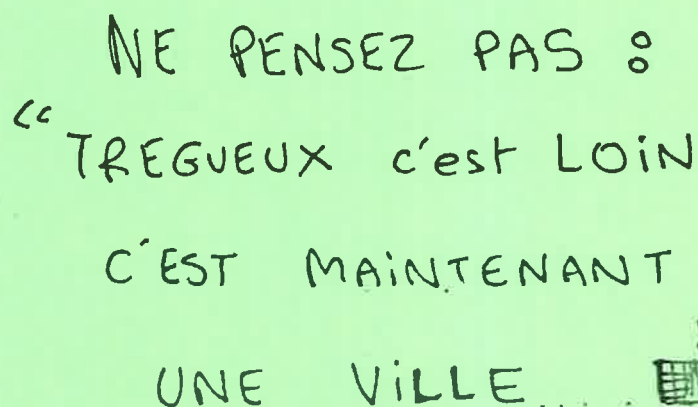 NE PENSEZ PAS :
“TREGUEUX c'est LOiN
C'EST MAiNTENANT
UNE ViLLE....